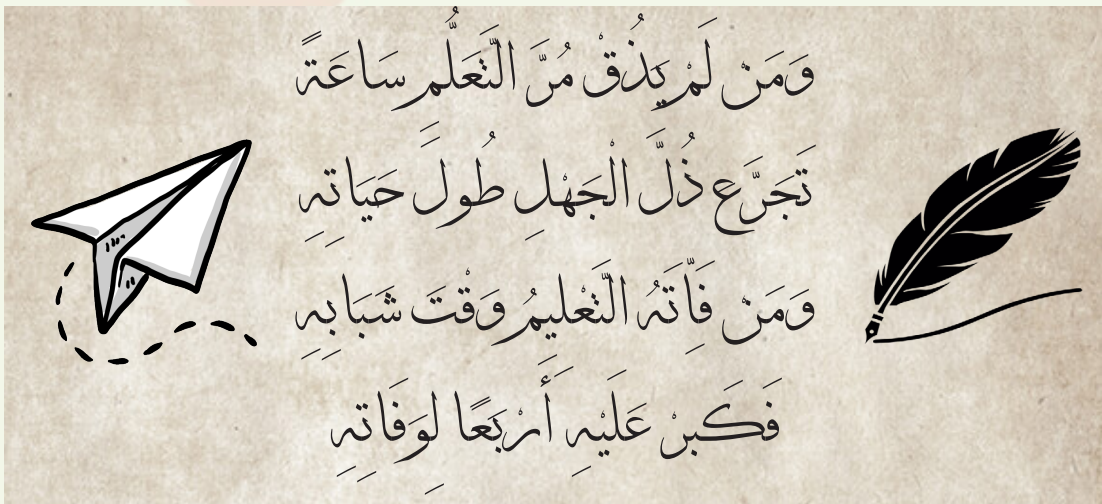 وَمَنْ لَمْ يَذُقْ مُرَّ التَّعَلُّمِ سَاعَةً
تَجَرَّعَ ذُلَّ الْجَهْلِ طُولَ حَيَاتِهِ
وَمَنْ فَاتَهُ التَّعْلِيمُ وَقْتَ شَبَابِهِ
فَكَبِرْ عَلَيْهِ أَرْبَعًا لِوَفَاتِهِ